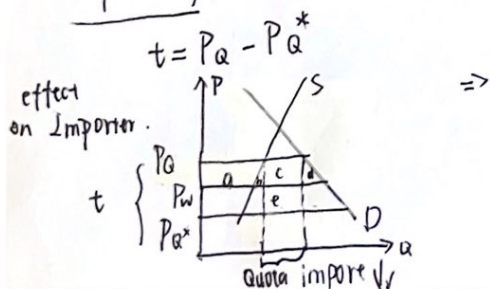 t = PQ - PQ*
effect
on Importer.
P
S
=>
PQ
a
b
c
d
t
Pw
e
PQ*
D
Q
Quota import